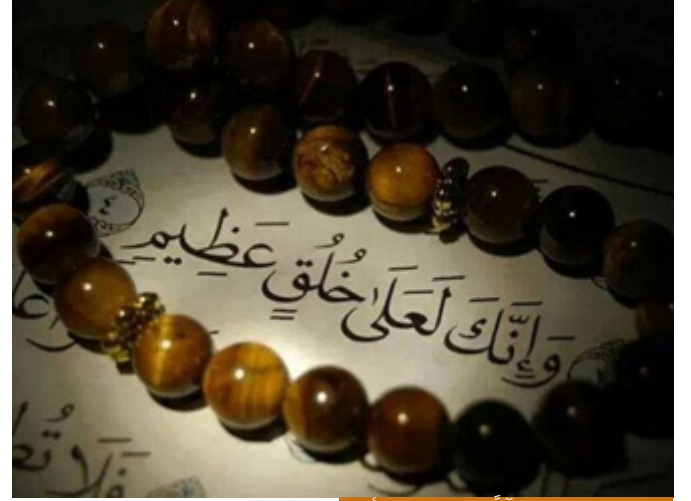 وَإِنَّكَ لَعَلَىٰ خُلُقٍ عَظِيمٍ ٤
فَلَا تُطِ